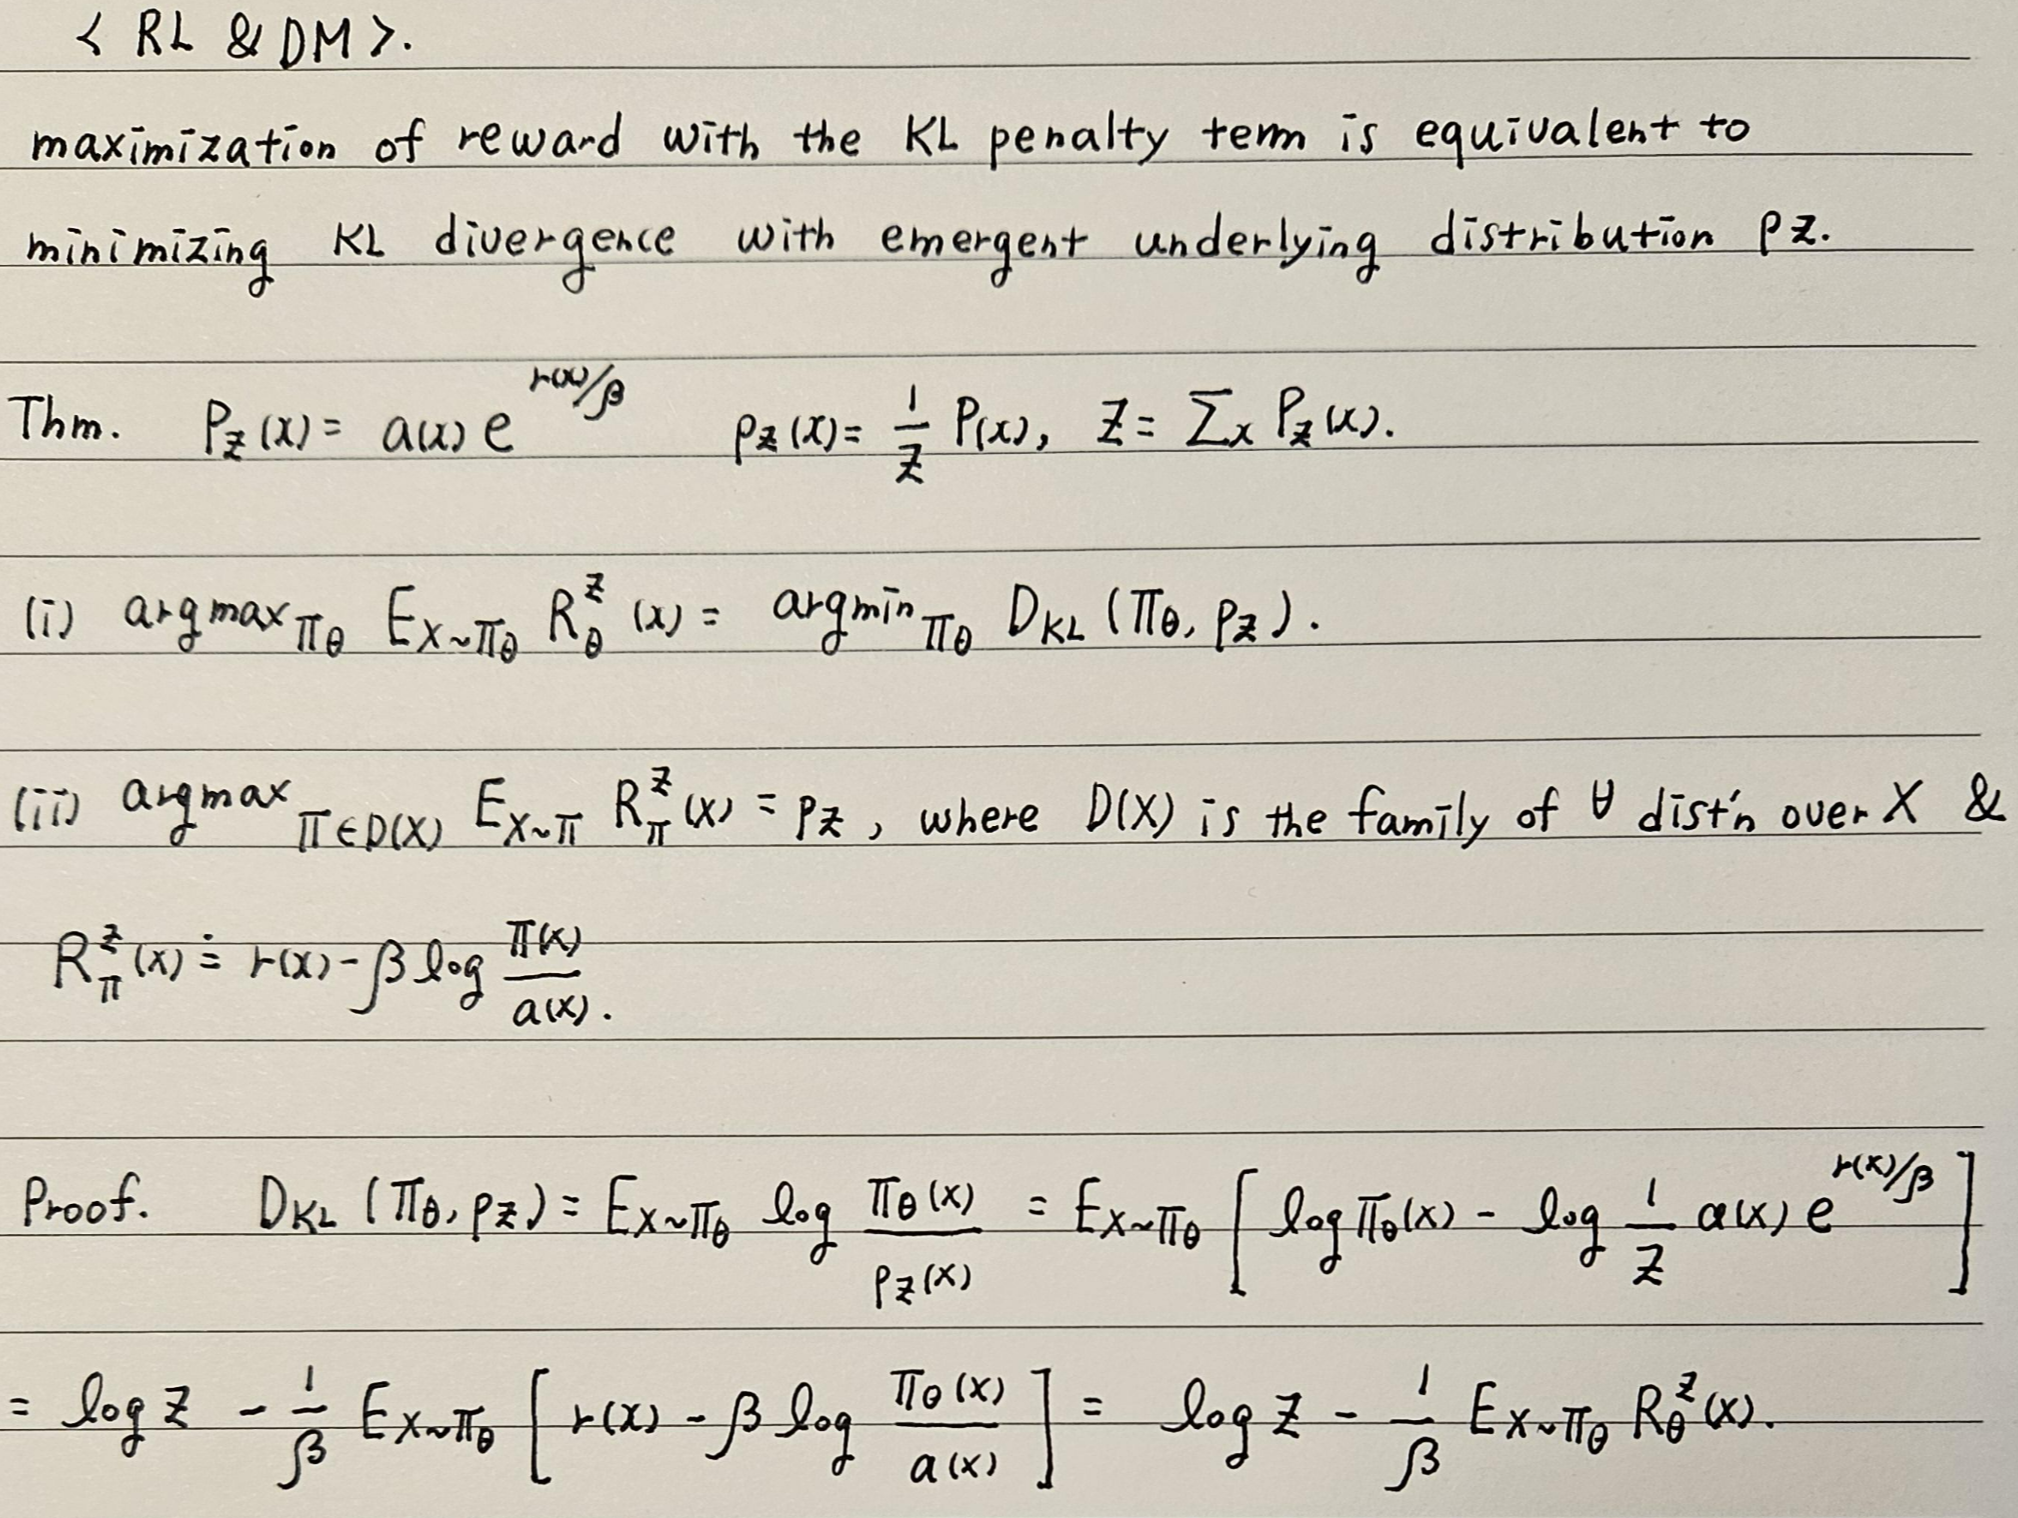 < RL & DM >.
maximization of reward with the KL penalty term is equivalent to
minimizing KL divergence with emergent underlying distribution pz.
Thm. P_z(x) = a(x) e^{r(x)/β} p_z(x) = 1/Z P(x), Z = Σ_x P_z(x).
(i) argmax_{πθ} E_{x~πθ} R_θ^z (x) = argmin_{πθ} D_KL (πθ, p_z).
(ii) argmax_{π∈D(X)} E_{x~π} R_π^z (x) = p_z, where D(X) is the family of ∀ dist'n over X &
R_π^z (x) ≐ r(x) - β log π(x)/a(x).
Proof. D_KL (πθ, p_z) = E_{x~πθ} log πθ(x)/p_z(x) = E_{x~πθ} [ log πθ(x) - log 1/Z a(x) e^{r(x)/β} ]
= log Z - 1/β E_{x~πθ} [ r(x) - β log πθ(x)/a(x) ] = log Z - 1/β E_{x~πθ} R_θ^z (x).